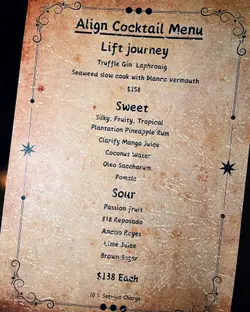 Align Cocktail Menu
Lift journey
Truffle Gin Laphroaig
Seaweed slow cook with blanco vermouth
$158
Sweet
Silky, Fruity, Tropical
Plantation Pineapple Rum
Clarify Mango Juice
Coconut Water
Oleo Saccharum
Pomelo
Sour
Passion fruit
818 Reposado
Ancho Reyes
Lime Juice
Brown Sugar
$138 Each
10% Service Charge